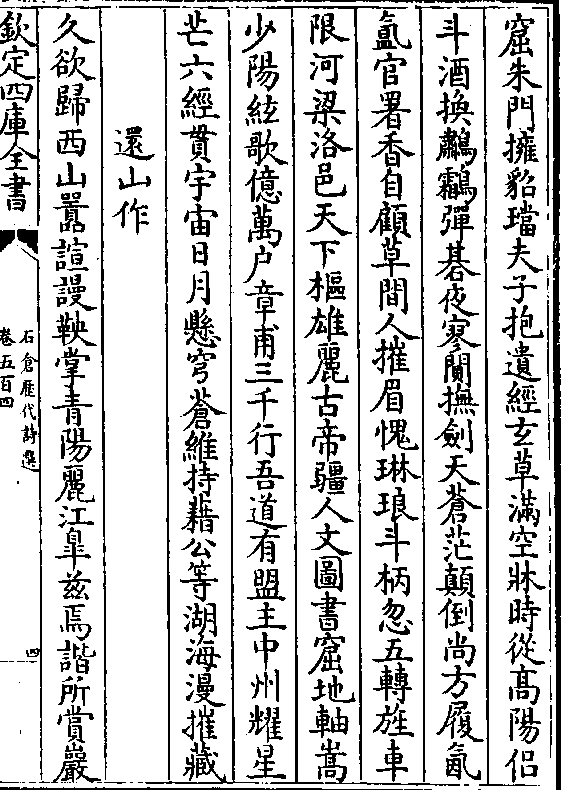 窟朱門擁貂璫夫子抱遺經玄草滿空牀時從高陽侶
斗酒換鸘彈碁夜寥闃撫劍天蒼茫顛倒尚方履氤
氳官署香自顧草間人摧眉愧琳琅斗柄忽五轉旌車
限河梁洛邑天下樞雄麗古帝疆人文圖書窟地軸嵩
少陽絃歌億萬户章甫三千行吾道有盟主中州耀星
芒六經貫宇宙日月懸穹蒼維持藉公等湖海漫摧藏
還山作
久欲歸西山囂諠謾鞅掌青陽麗江臯兹焉諧所賞巖
欽定四庫全書
石倉歷代詩選
卷五百四
四